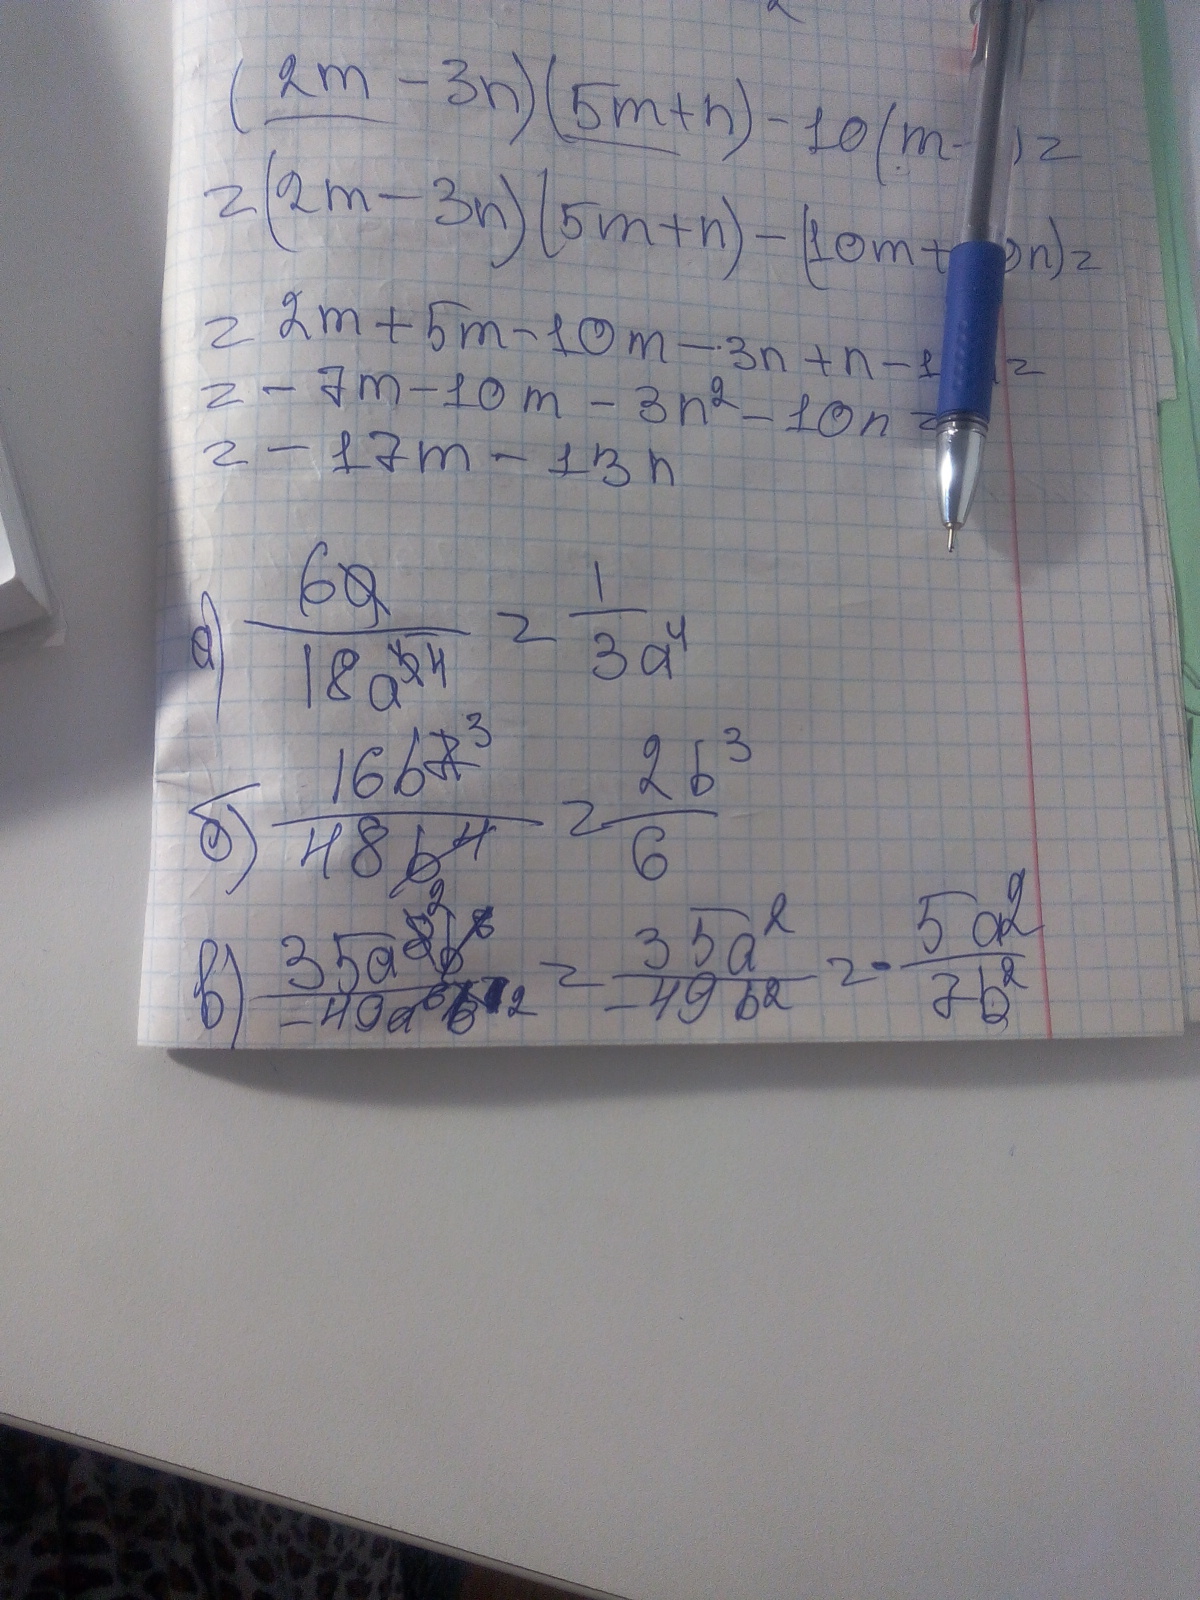 (2m - 3n)(5m+n) - 10(m- ) =
= (2m - 3n)(5m+n) - (10m+ 0n) =
= 2m + 5m - 10m - 3n + n - 1 =
= - 7m - 10m - 3n² - 10n =
= - 17m - 13n
а) 6a / 18a⁴ = 1 / 3a⁴
б) 16b⁷ ³ / 48b⁴ = 2b³ / 6
в) 35a ² b / -49a b ² = 35a² / -49b² = - 5a² / 7b²